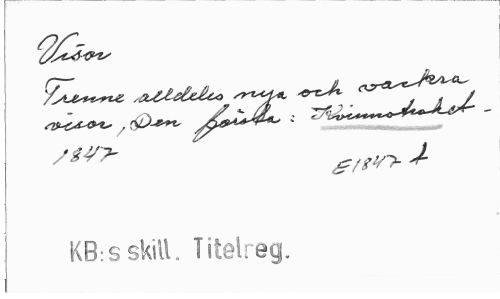 Visor
Trenne alldeles nya och vackra
visor, Den första: Kvinnotroket -
1847
E1847 t
KB:s skill. Titelreg.